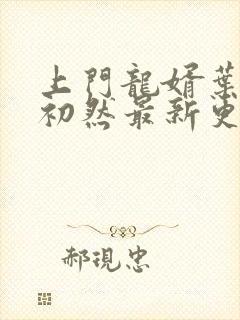 上門龍婿葉
初然最新更
郝現忠